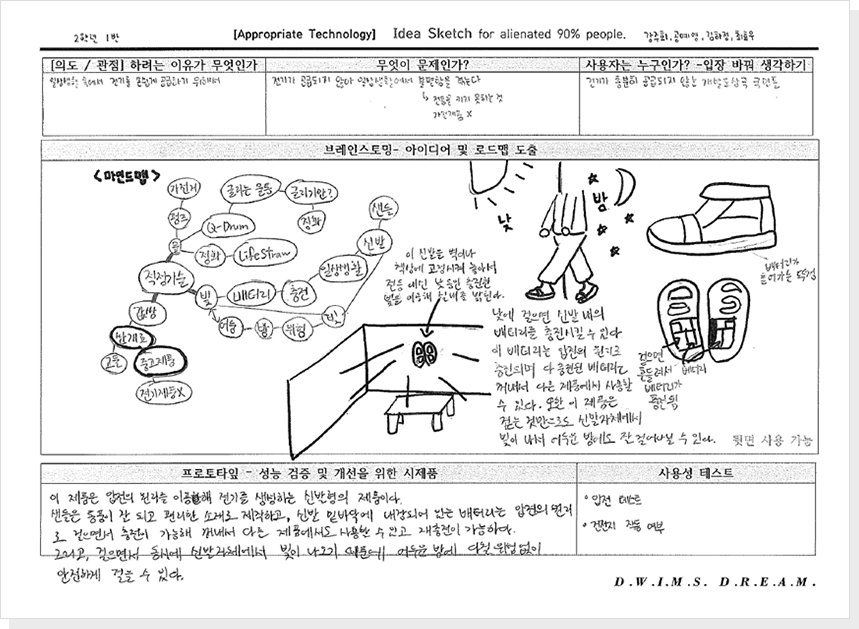 2학년 1반
[Appropriate Technology] Idea Sketch for alienated 90% people.
[의도 / 관점] 하려는 이유가 무엇인가
무엇이 문제인가?
사용자는 누구인가? -입장 바꿔 생각하기
일상생활 속에서 전기를 손쉽게 공급하기 위해서
전기가 공급되지 않아 일상생활에서 불편함을 겪는다
↳ 전등을 키지 못하는 것
가전제품 X
전기가 충분히 공급되지 않는 개발도상국 국민들
브레인스토밍- 아이디어 및 로드맵 도출
<마인드맵>
자전거
굴리는 물통
굴리기만?
펌프
Q-Drum
정화
물
정화
LifeStraw
적정기술
빛
배터리
충전
일상생활
신발
샌들
어둠
밤
위험
빛
값싼
싼재료
고무
중고제품
전기제품X
낮
밤
이 신발을 벽이나
책상에 고정시켜 놓아서
전등 대신 낮 동안 충전한
빛을 이용해 실내를 밝힌다.
낮에 걸으면 신발 내의
배터리를 충전시킬 수 있다
이 배터리는 압전의 원리로
충전되며 다 충전된 배터리는
꺼내서 다른 제품에서 사용할
수 있다. 또한 이 제품은
걷는 것만으로도 신발자체에서
빛이 나서 어두운 밤에도 잘 걸어다닐 수 있다.
배터리가
들어가는 뚜껑
걸으면
흔들려서
배터리가
충전됨
배터리
뒷면 사용 가능
프로토타입 - 성능 검증 및 개선을 위한 시제품
사용성 테스트
이 제품은 압전의 원리를 이용해 전기를 생성하는 신발형의 제품이다.
샌들은 통풍이 잘 되고 편리한 소재로 제작하고, 신발 밑바닥에 내장되어 있는 배터리는 압전의 원리
로 걸으면서 충전이 가능해 꺼내서 다른 제품에서도 사용할 수 있고 재충전이 가능하다.
그리고, 걸으면서 동시에 신발자체에서 빛이 나오기 때문에 어두운 밤에 다칠 위험 없이
안전하게 걸을 수 있다.
° 압전 테스트
° 건전지 작동 여부
D.W.I.M.S. D.R.E.A.M.